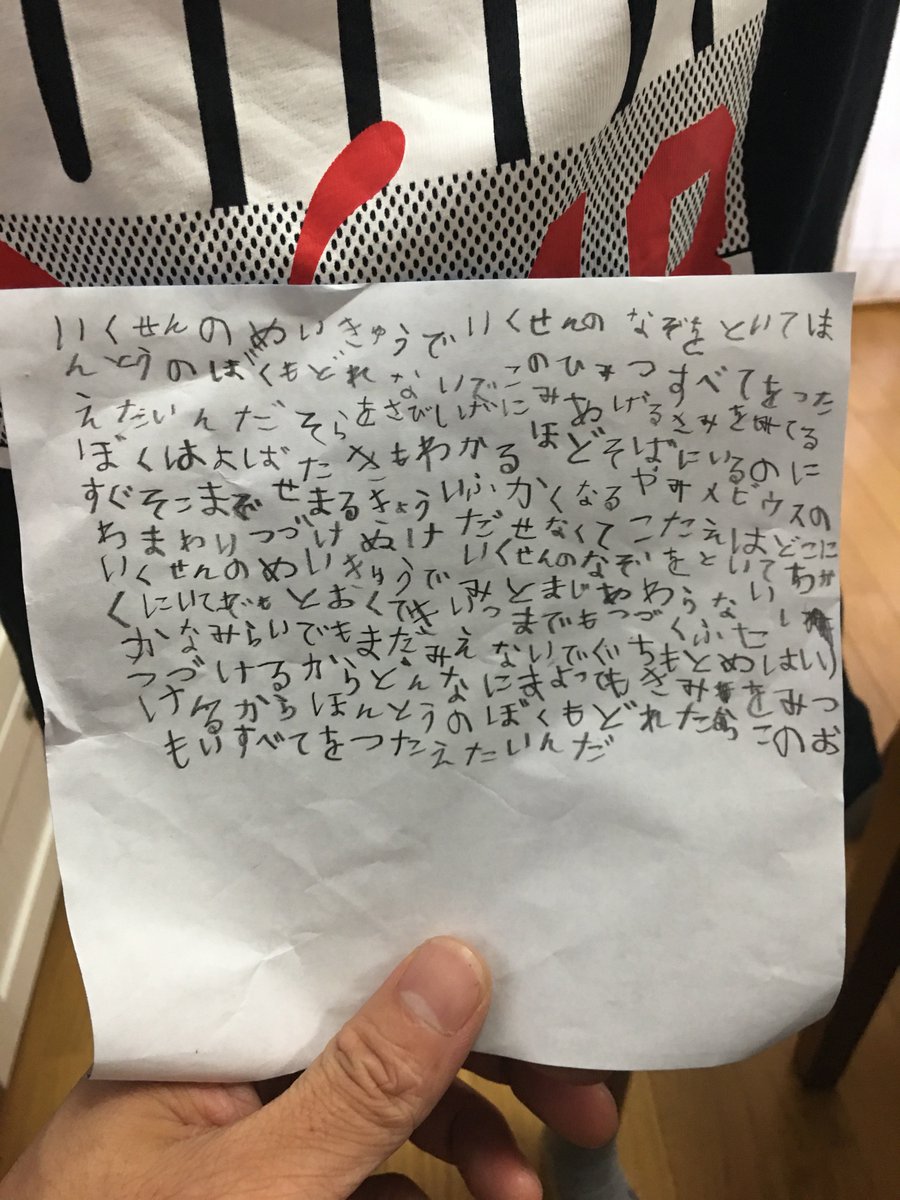 いくせんのめいきゅうでいくせんのなぞをといてほ
んとうのぼくもどれないでこのひみつすべてをつた
えたいんだそらをさびしげにみあげるきみをみてる
ぼくはよしばたきもわかるほどそばにいるのに
すぐそこまでせまるきょういふかくなるやみメビウスの
わまわりつづけぬけだせなくてこたえはどこに
いくせんのめいきゅうでいくせんのなぞをといてちか
くにいてもとおくてき
かなみらいでもまだみえないでぐちもとめはしり
つづけるからどんなにまよってもきみをみつ
けるからほんとうのぼくもどれたらこのお
もいすべてをつたえたいんだ